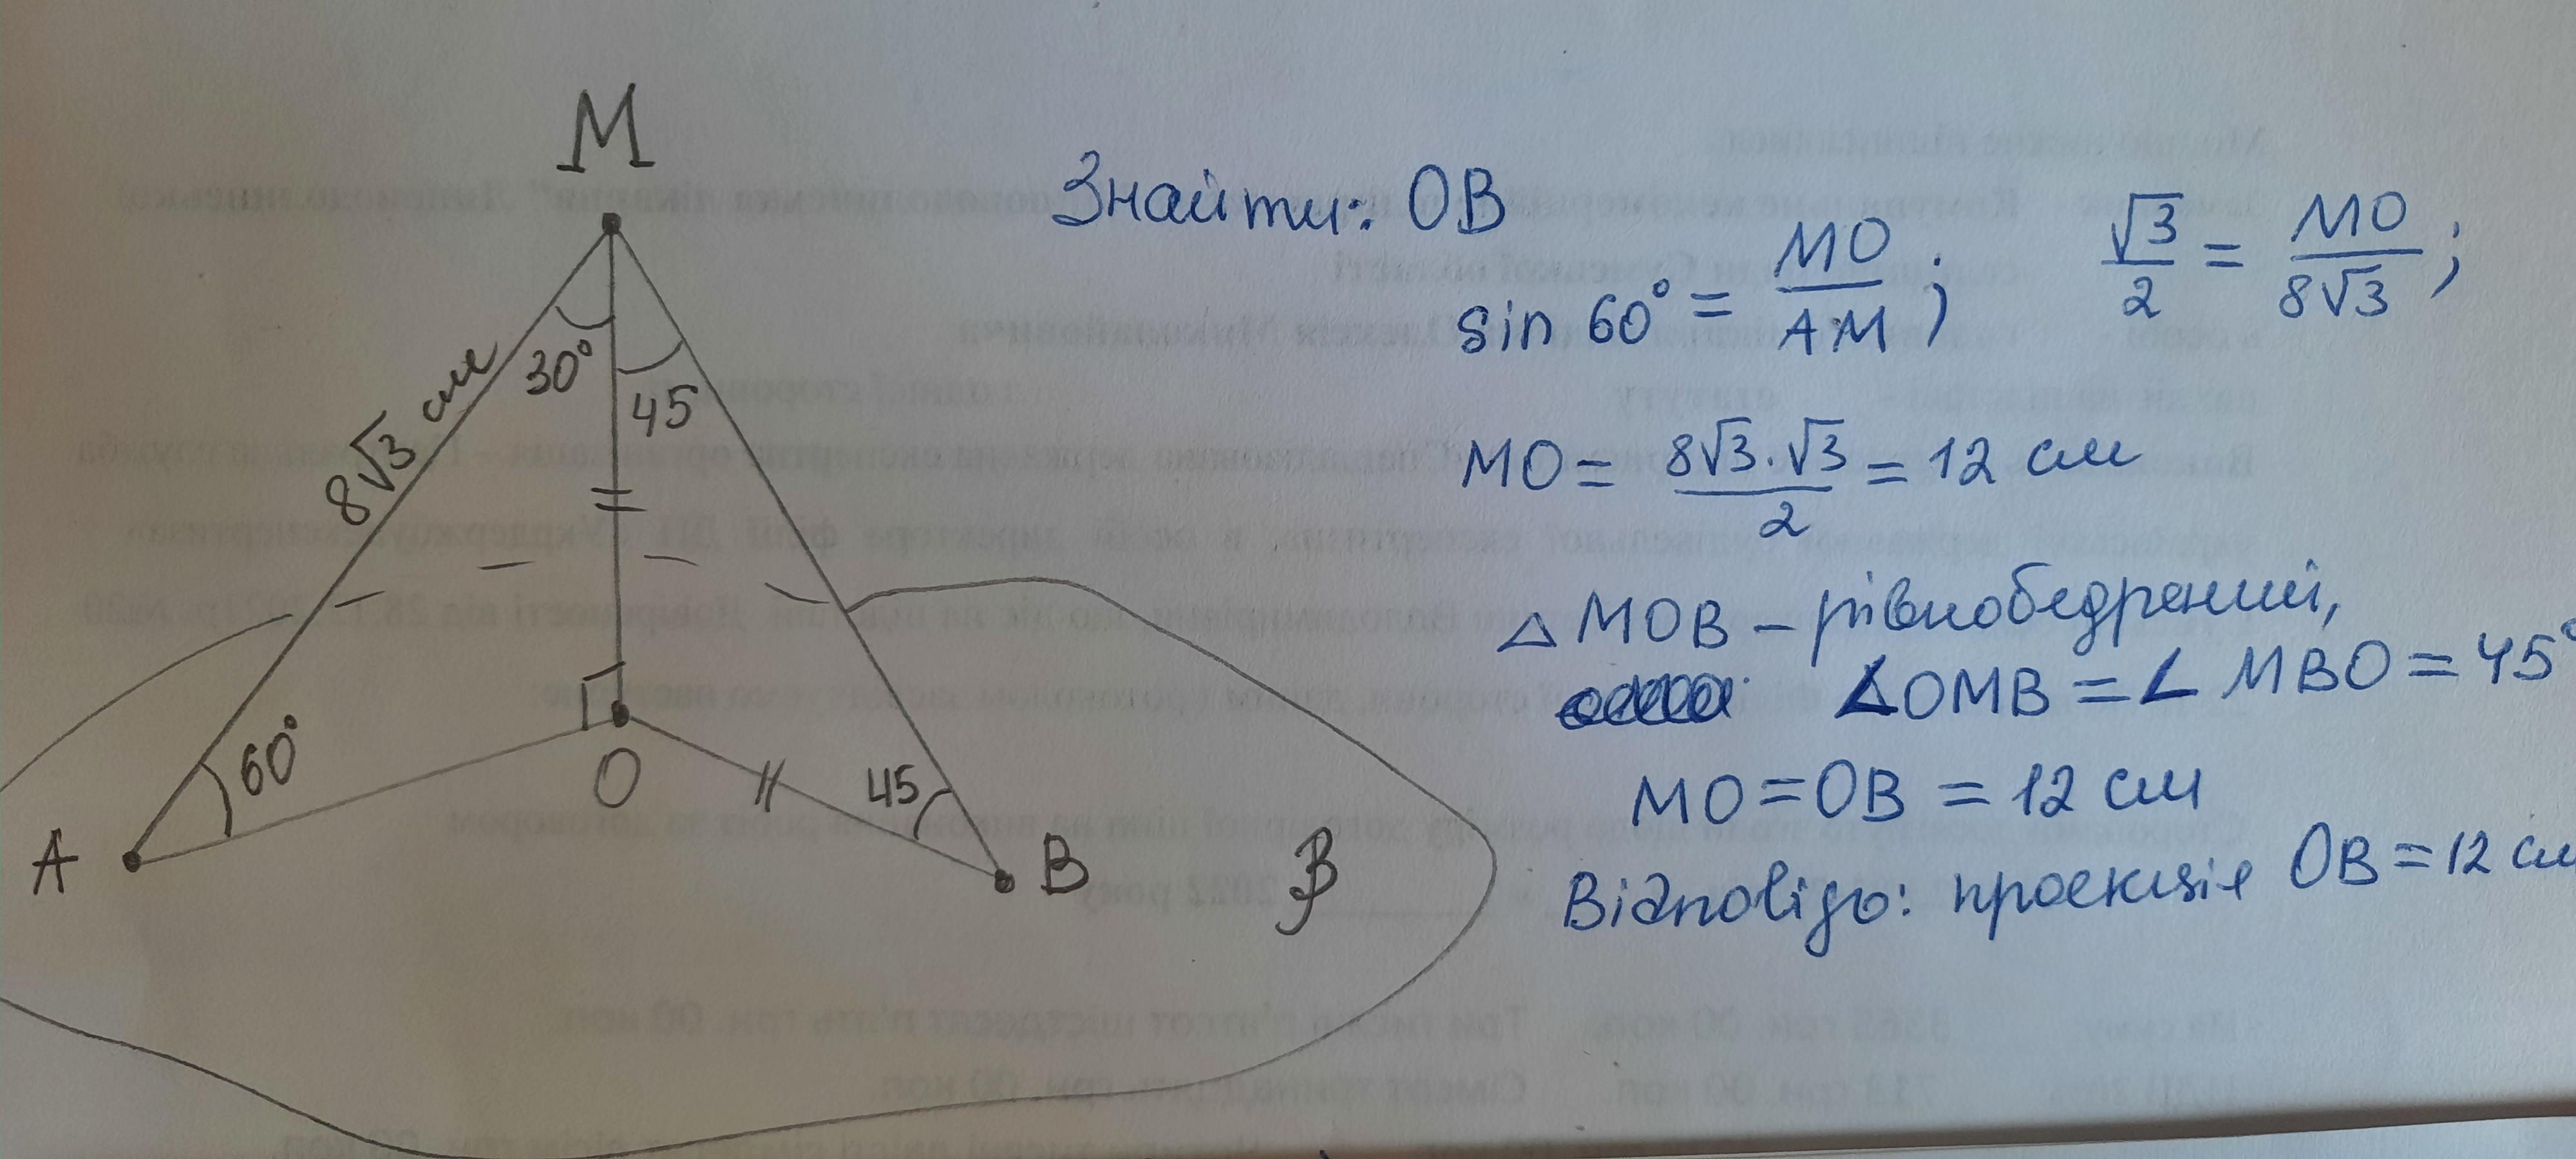 M
30°
45
8√3 см
60°
O
45
A
B
β
Знайти: OB
sin 60° = MO/AM; √3/2 = MO/8√3;
MO = 8√3·√3/2 = 12 см
△ MOB – рівнобедрений,
∠OMB = ∠ MBO = 45°
MO = OB = 12 см
Відповідь: проекція OB = 12 см